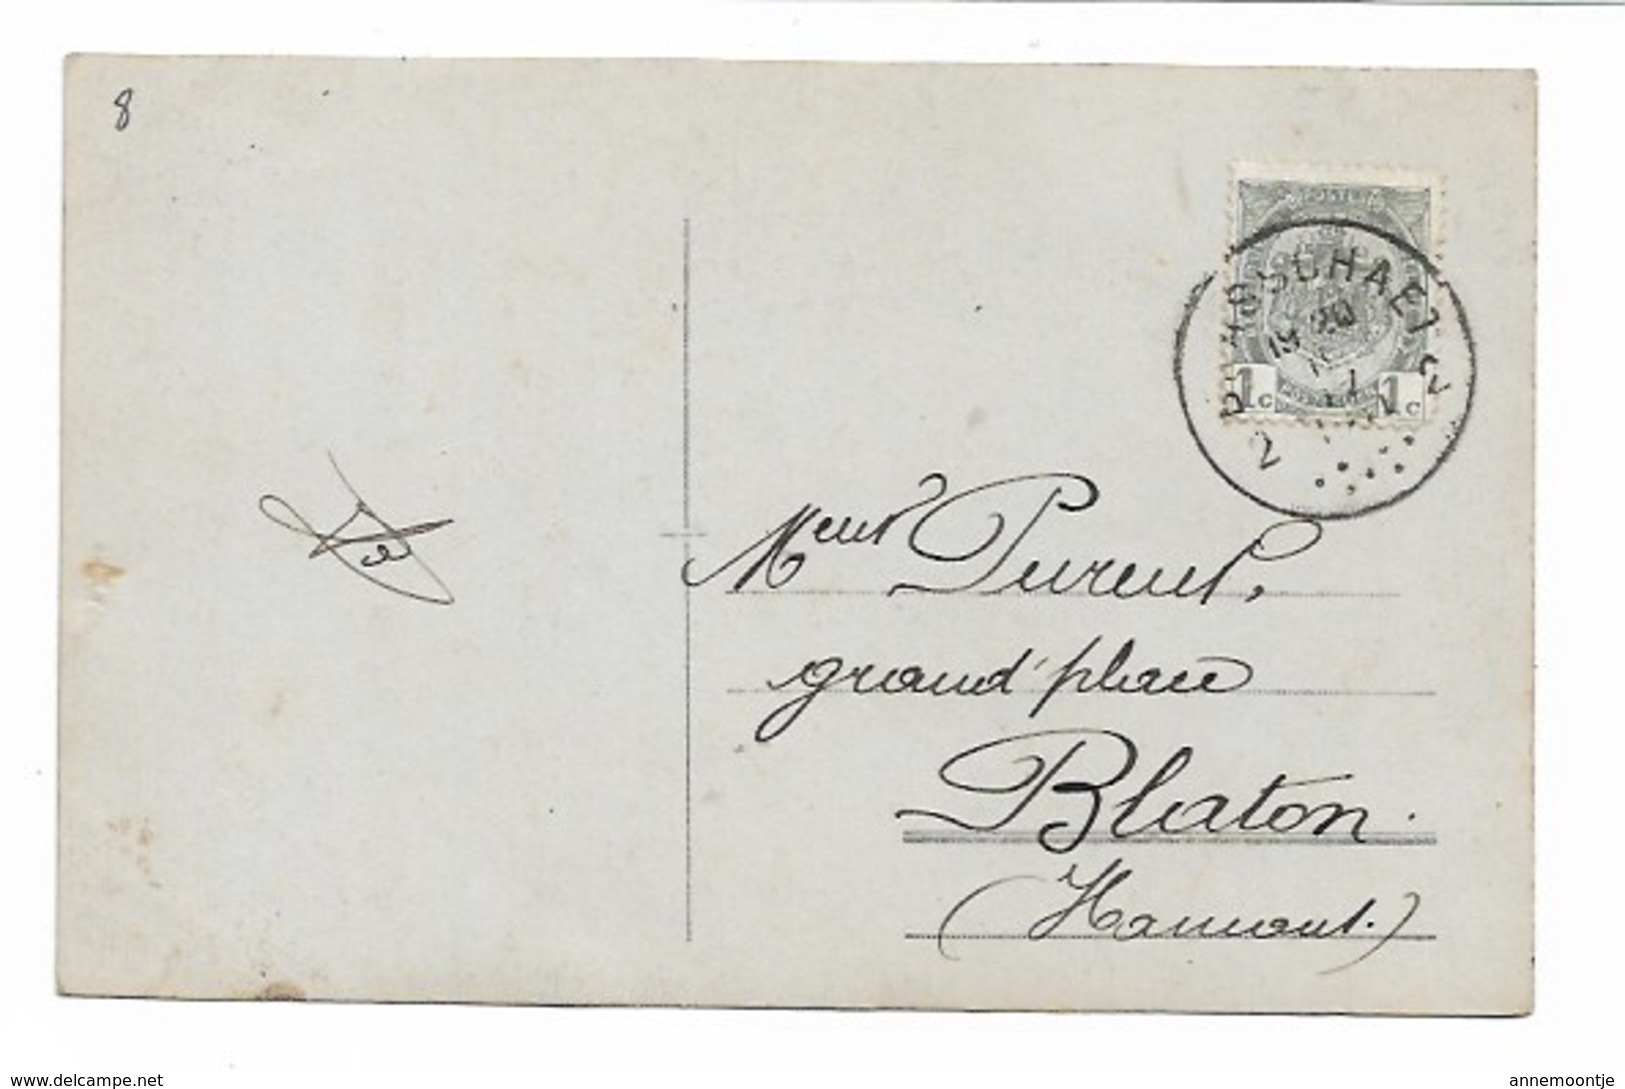 8
POSTES
19 20
1
2
1c 1c
Meur Pureur,
grand'place
Blaton.
(Hainaut.)
www.delcampe.net
annemoontje